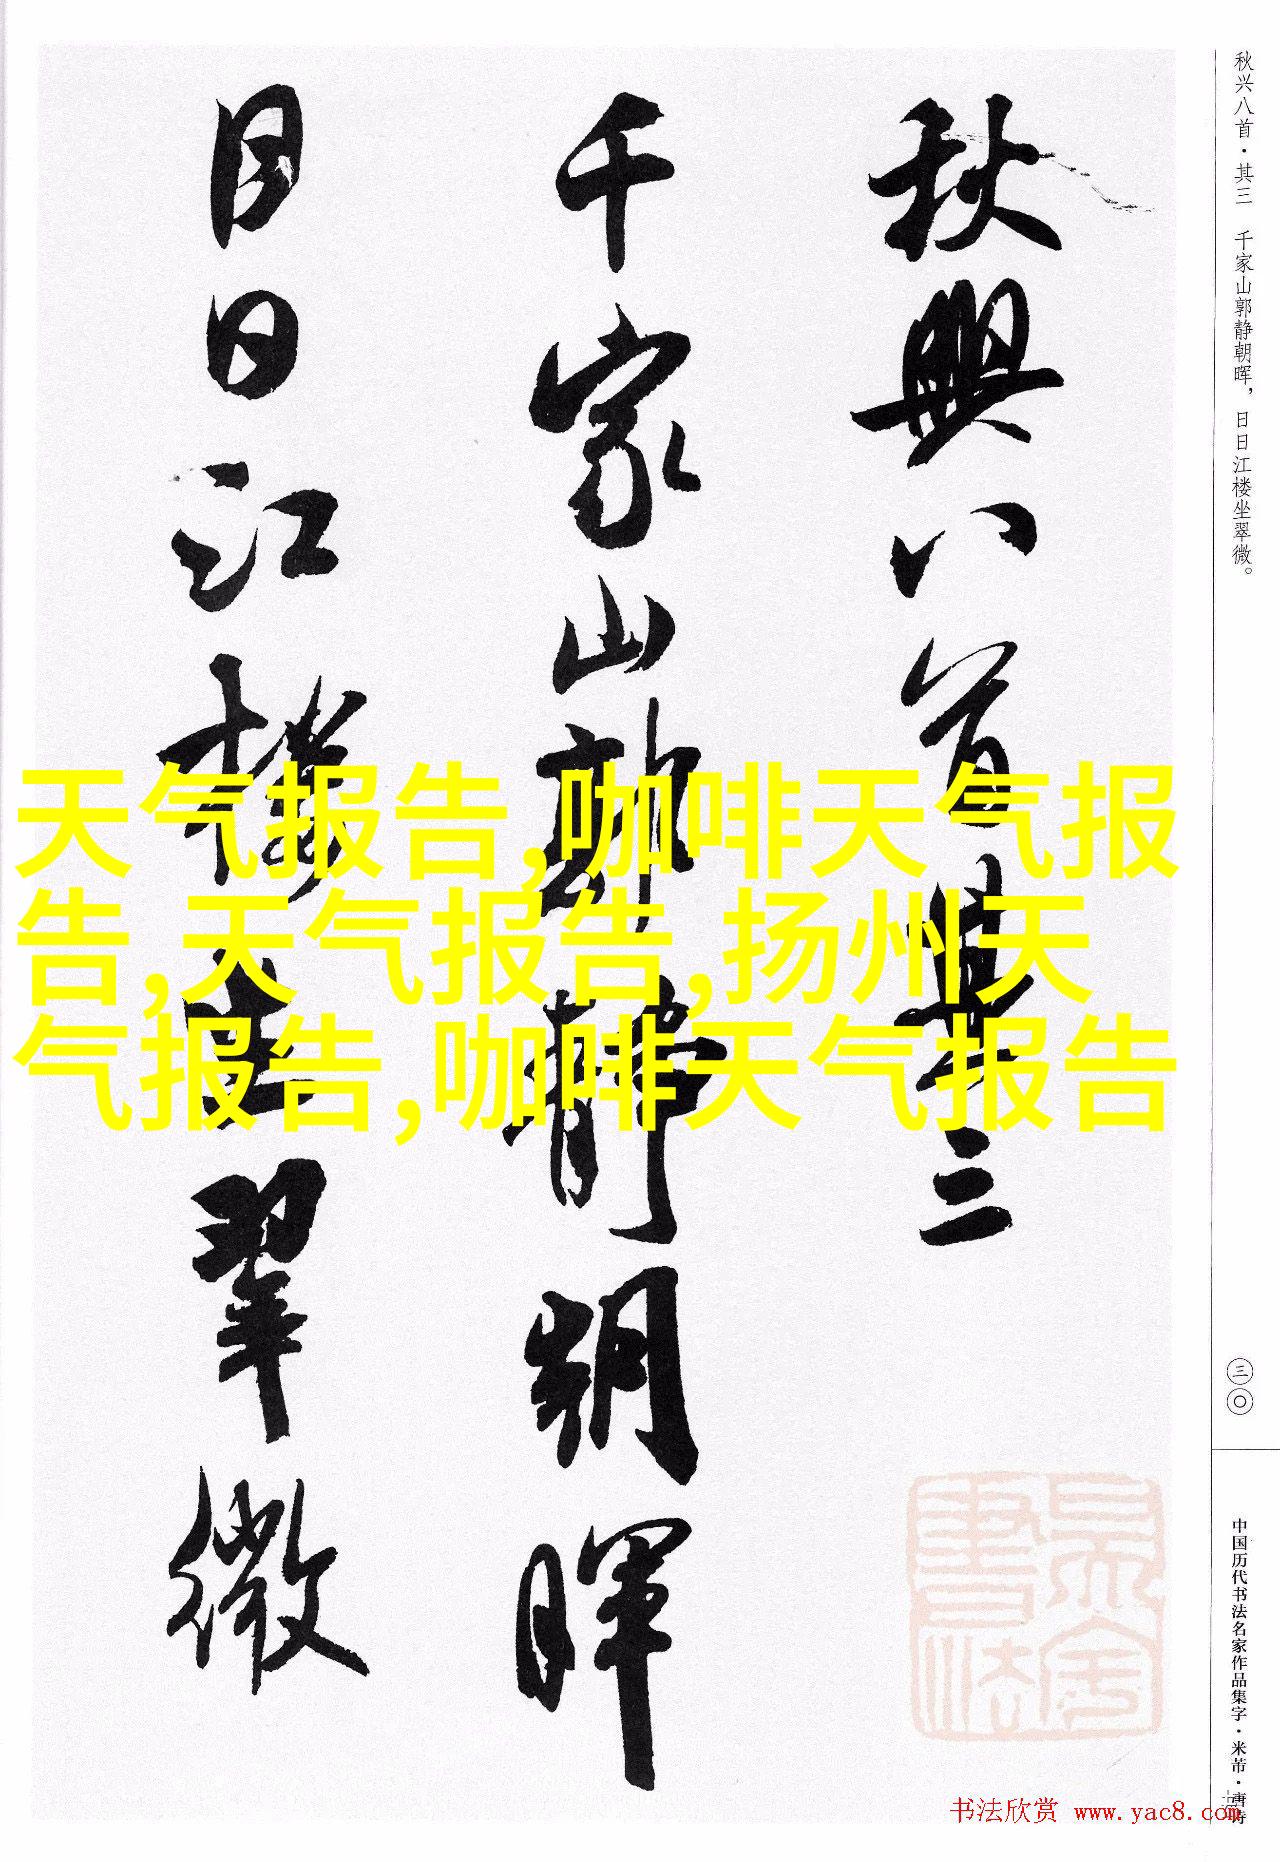 秋兴八首·其三　千家山郭静朝晖，日日江楼坐翠微。
秋興八首其三
千家山郭静朝暉
日日江樓坐翠微
天气报告,咖啡天气报
告,天气报告,扬州天
气报告,咖啡天气报告
三〇
中国历代书法名家作品集字·米芾·唐诗
书法欣赏 www.yac8.com